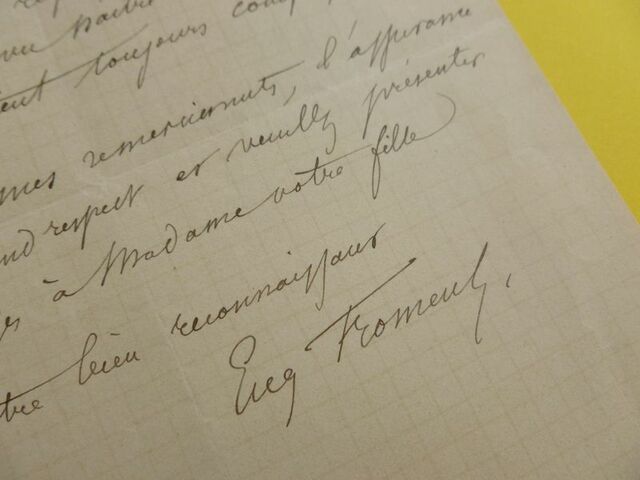 toujours
mes remerciements, l'assurance
nd respect et veuillez présenter
es à Madame votre fille
tre bien reconnaissant
Eug Froment,